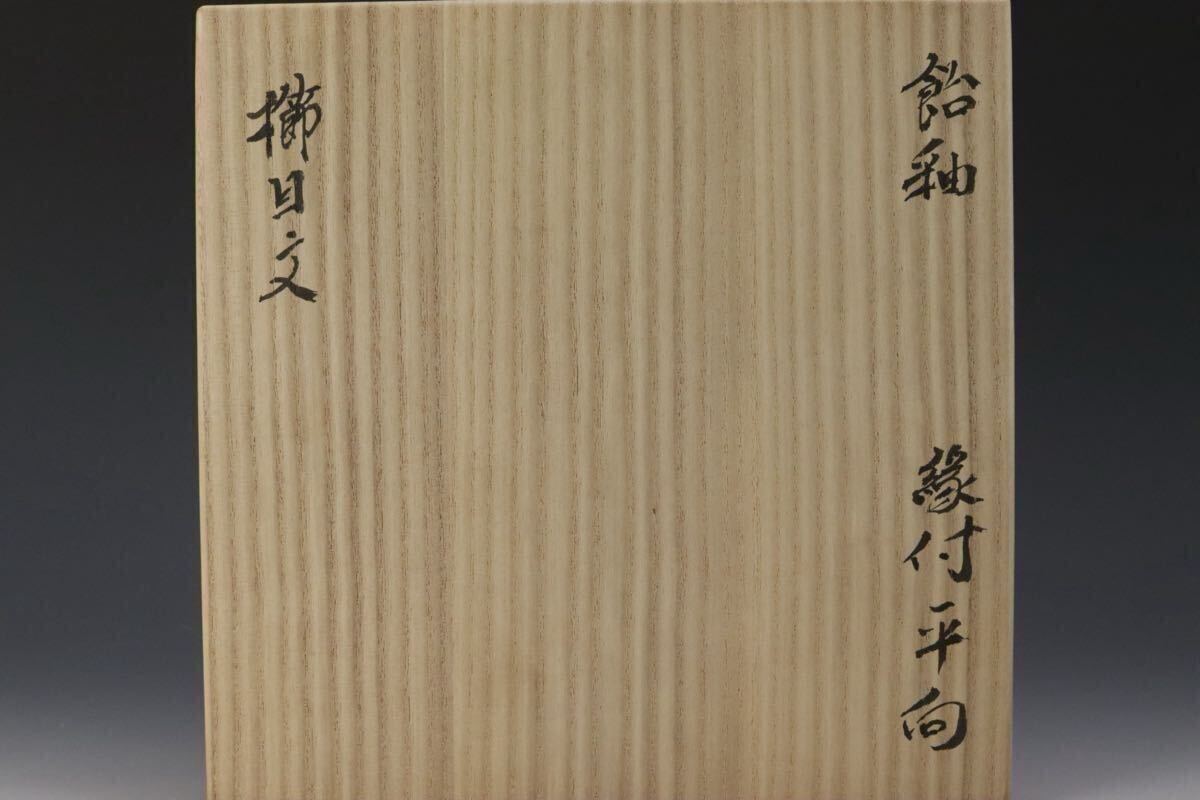 飴釉　縁付平向
櫛目文